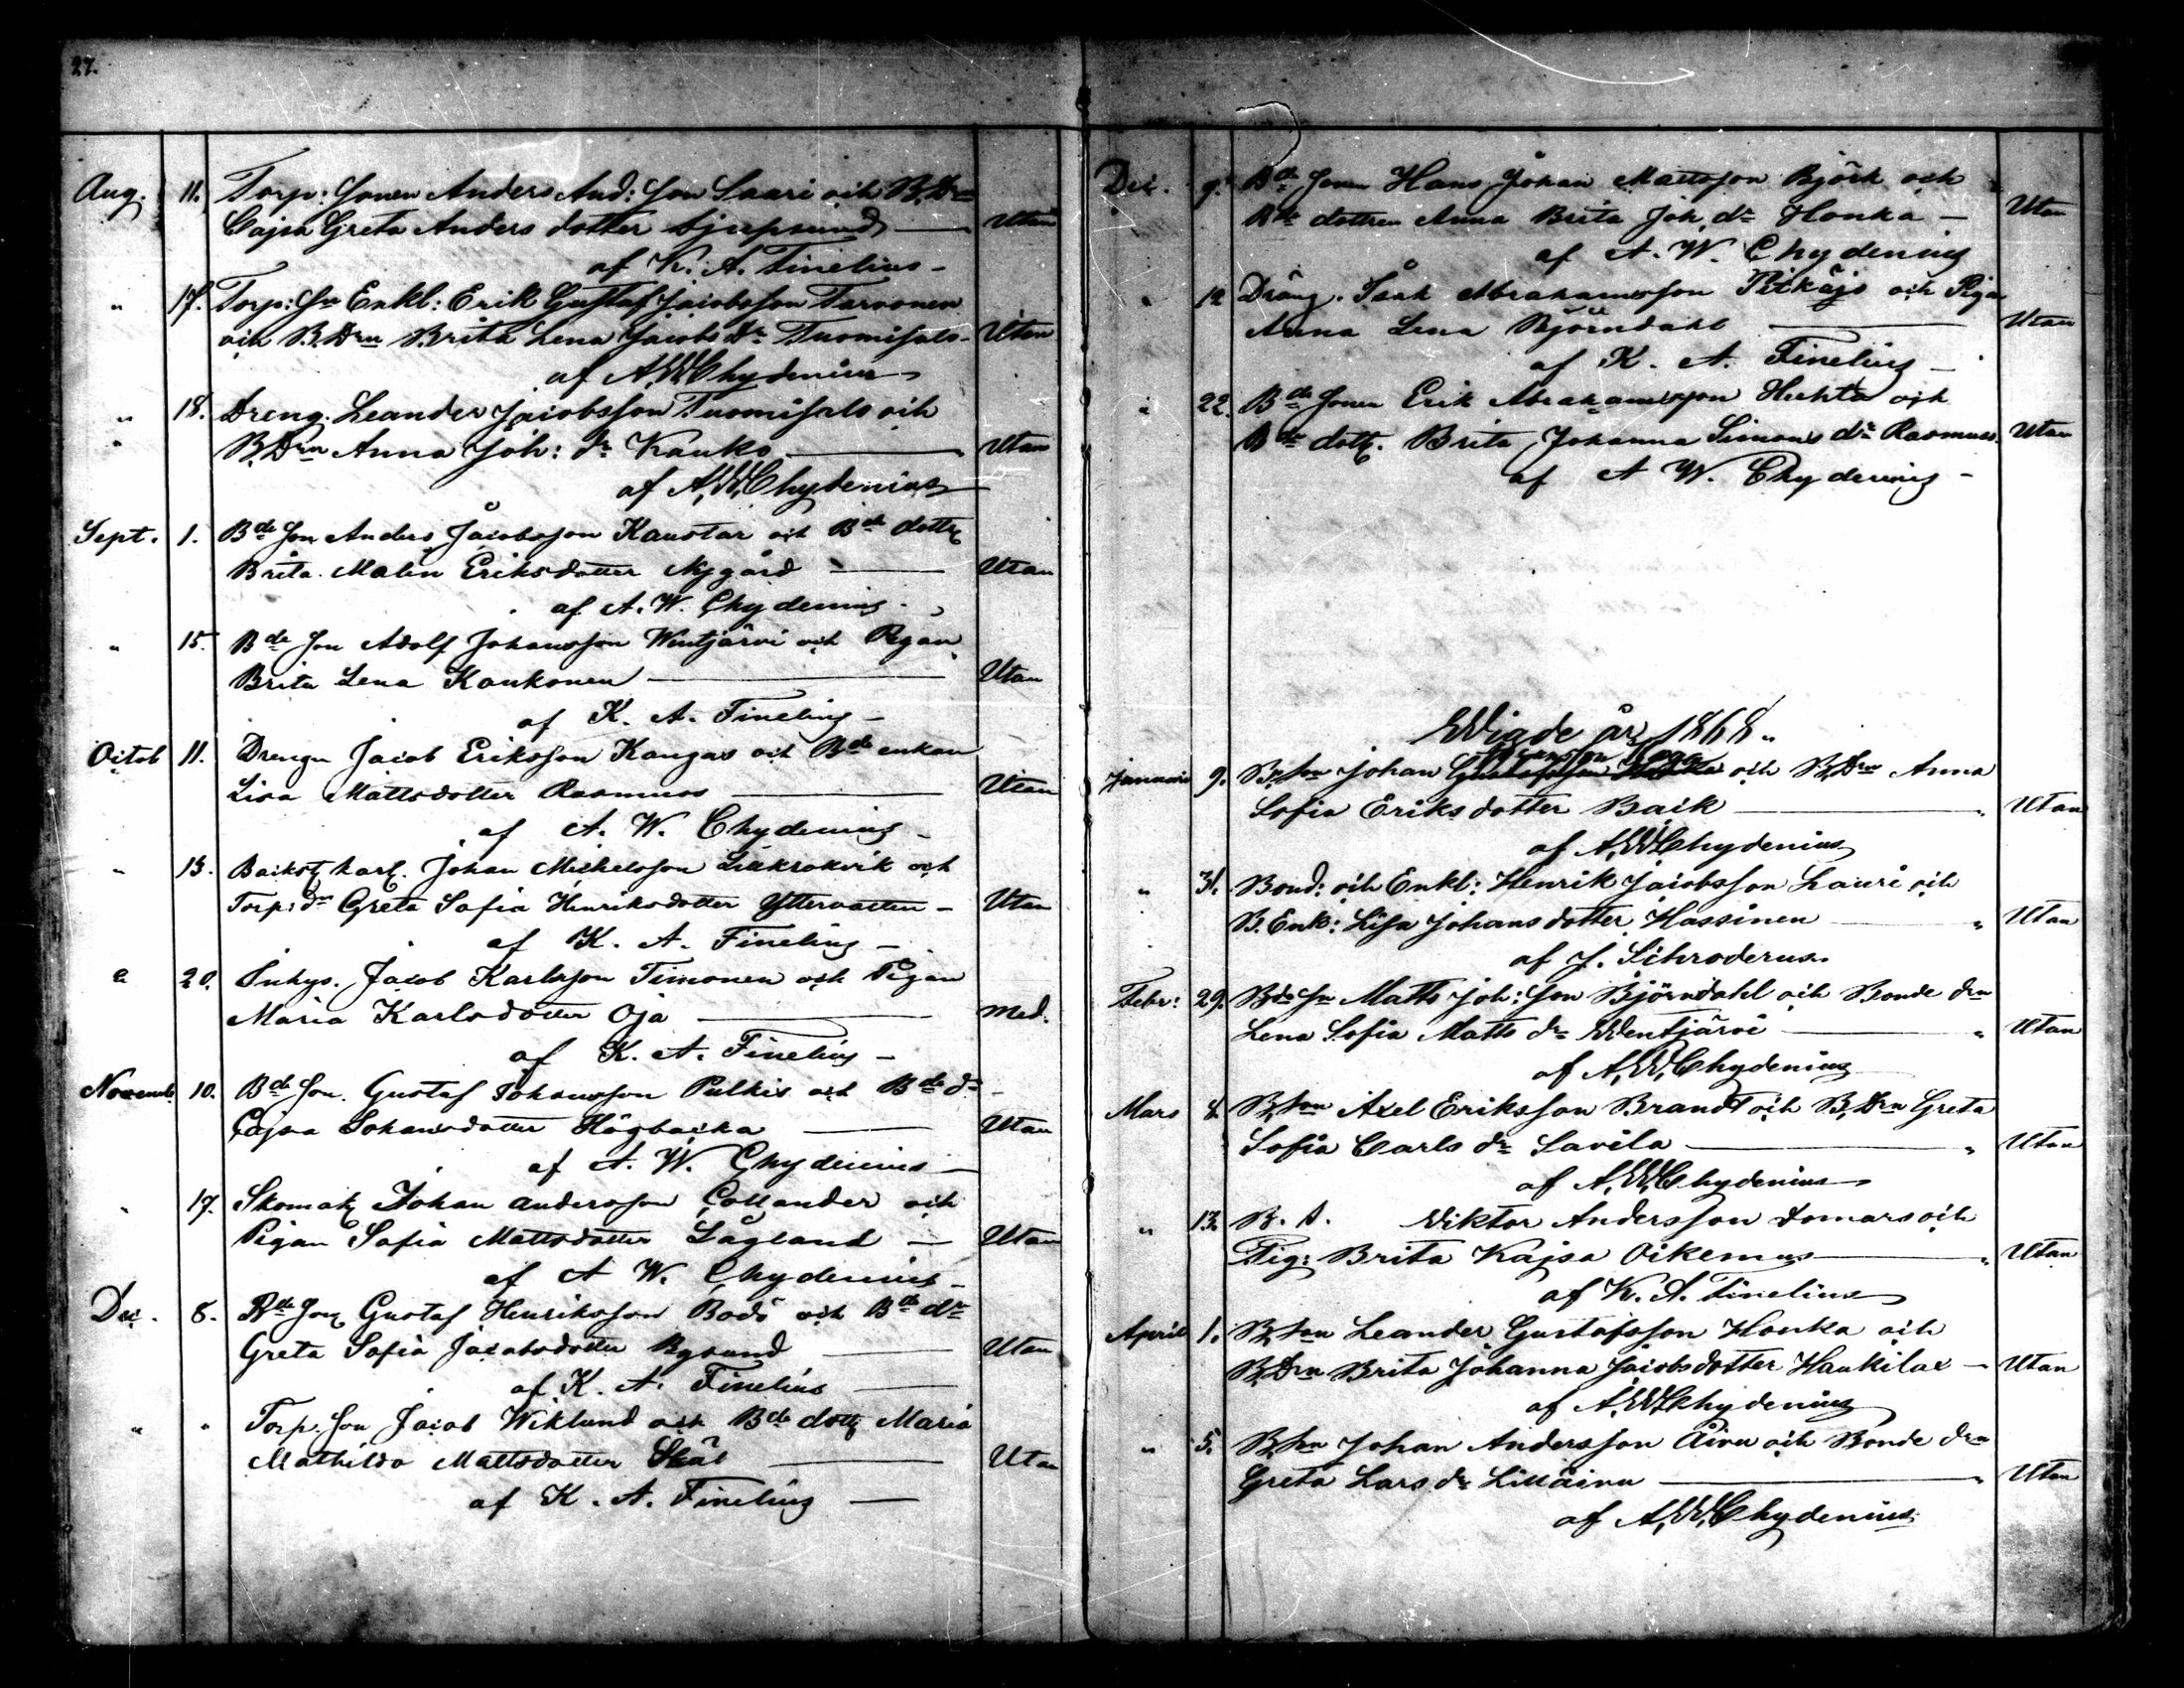 27.
Aug. 11. Torp: Sonen Anders And: Son Saari och B. Drn
Cajsa Greta Anders dotter Djupsund — Utan
af K. A. Finelius
" 17. Torp: Sn Enkl: Erik Gustaf Jacobsson Tarvonen
och B. Drn Brita Lena Jacobs dr Tuomisalo Utan
af A. W. Chydenius
" 18. Dreng. Leander Jacobsson Tuomisalo och
" B. Drn Anna Joh: dr Kauko — Utan
af A. W. Chydenius
Sept. 1. Bde Son Anders Jacobsson Kaustar och Bde dottr
Brita Malin Eriksdotter Nygård — Utan
af A. W. Chydenius
" 15. Bde Son Adolf Johansson Wintjärvi och Pigan
Brita Lena Kaukonen — Utan
af K. A. Finelius
Octob 11. Drengn Jacob Eriksson Kangas och Bde enkan
Lisa Mattsdotter Rasmus — Utan
af A. W. Chydenius
" 13. Backst karl. Johan Michelsson och
Torp: dr Greta Sofia Henriksdotter Yttervatten — Utan
af K. A. Finelius
" 20. Inhys. Jacob Karlsson Timonen och Pigan
Maria Karlsdotter Oja — Med.
af K. A. Finelius
Novemb. 10. Bde Son. Gustaf Johansson Pulkis och Bde dr
Cajsa Johansdotter Högbacka — Utan
af A. W. Chydenius
" 17. Skomak Johan Andersson Collander och
Pigan Sofia Mattsdotter Lågland — Utan
af A W. Chydenius
Dec. 8. Bde Son Gustaf Henriksson Bodö och Bde dr
Greta Sofia Jacobsdotter Bysund — Utan
af K. A. Finelius
" " Torp. Son Jacob Wiklund och Bde dottr Maria
Mathilda Mattsdotter Skäl — Utan
af K. A. Finelius
Dec. 9. Bde Sonen Hans Johan Mattsson Björk och
Bde dottren Anna Brita Joh. dr Honka — Utan
af A. W. Chydenius
" 12 Dräng. Isak Abrahamsson Pitkäjs och Piga
Anna Lena Björndahl — Utan
af K. A. Finelius
" 22. Bde Sonen Erik Abrahamsson Huhta och
Bde dott. Brita Johanna Simons dr Rasmus. Utan
af A W. Chydenius
Wigde år 1868.
Januari 9. B. Son Johan och B. Drn Anna
Sofia Eriksdotter Baik — Utan
af A. W. Chydenius
" 31. Bond: och Enkl: Henrik Jacobsson Lauri och
B. Enk: Lisa Johansdotter Hassinen — " Utan
af J. Schroderus.
Febr: 29. Bde Sn Matts Joh: Son Björndahl och Bonde drn
Lena Sofia Matts dr Wentjärvi — " Utan
af A. W. Chydenius
Mars 8. B. Son Axel Eriksson Brandt och B. Drn Greta
Sofia Carls dr Savila — " Utan
af A. W. Chydenius
" 13. B. S. Wiktor Andersson Domars och
Pig: Brita Kajsa Oikemus — " Utan
af K. A. Finelius
April 1. B. Son Leander Gustafsson Honka och
B. Drn Brita Johanna Jacobsdotter Haukilax — Utan
af A. W. Chydenius
" 5. B. Son Johan Andersson Åivu och Bonde drn
Greta Lars dr Lilläinu — " Utan
af A. W. Chydenius